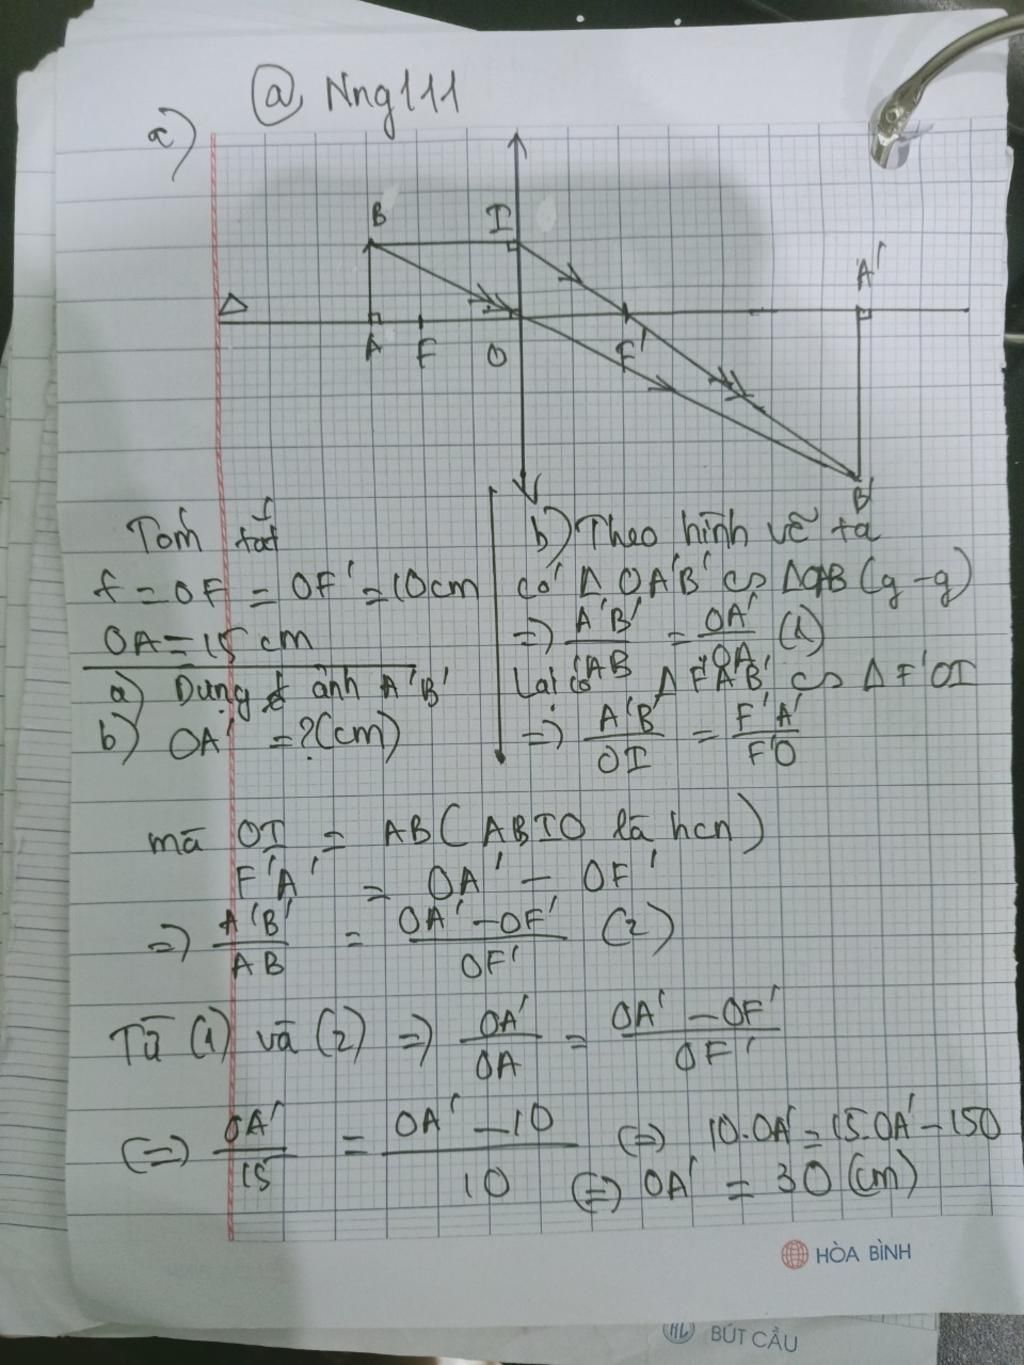 @ Nng111
a)
B I A'
Δ
A F O F'
B'
Tóm tắt
f = OF = OF' = 10cm
OA = 15 cm
a) Dựng ảnh A'B'
b) OA' = ?(cm)
b) Theo hình vẽ ta
có Δ OA'B' ∽ ΔOAB (g-g)
=> A'B'/AB = OA'/OA (1)
Lại có Δ F'A'B' ∽ Δ F'OI
=> A'B'/OI = F'A'/F'O
mà OI = AB ( ABIO là hcn )
F'A' = OA' - OF'
=> A'B'/AB = OA' - OF'/OF' (2)
Từ (1) và (2) => OA'/OA = OA' - OF'/OF'
<=> OA'/15 = OA' - 10/10 <=> 10.OA' = 15.OA' - 150
<=> OA' = 30 (cm)
HÒA BÌNH
BÚT CẦU